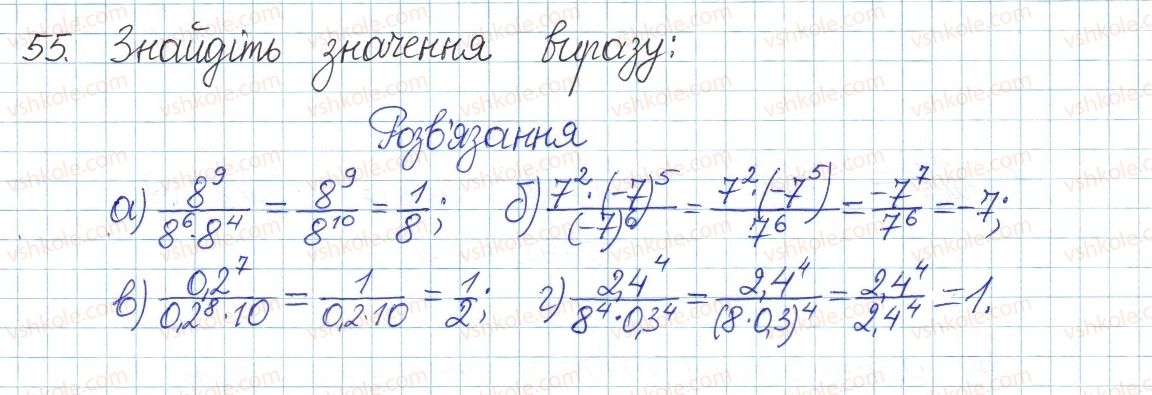 55. Знайдіть значення виразу:
Розв'язання
а) 8^9/(8^6·8^4) = 8^9/8^10 = 1/8; б) (7^2·(-7)^5)/(-7)^6 = (7^2·(-7^5))/7^6 = -7^7/7^6 = -7;
в) 0,2^7/(0,2^8·10) = 1/(0,2·10) = 1/2; г) 2,4^4/(8^4·0,3^4) = 2,4^4/(8·0,3)^4 = 2,4^4/2,4^4 = 1.
vshkole.com